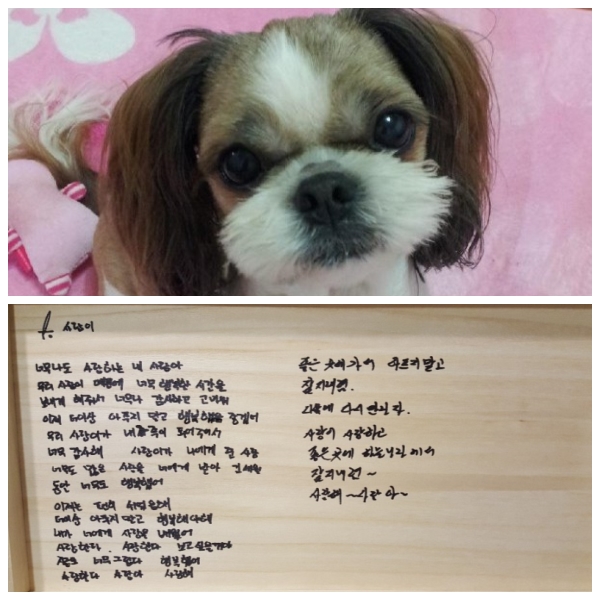 to. 사랑이
너무나도 사랑하는 내 사랑아
우리 사랑이 때문에 너무 행복한 시간을
보내게 해주어서 너무나 감사하고 고마워
이제 더이상 아프지 말고 행복했음 좋겠어
우리 사랑이가 내 가족이 되어주어서
너무 감사해 사랑이가 나에게 준 사랑
너무도 많은 사랑을 너에게 받아 긴 세월
동안 너무도 행복했어
이제는 편히 쉬었음 해
더이상 아프지 말고 행복해야해
내가 너에게 사랑을
사랑한다. 사랑한다 보고싶을거다
너무 그립다 행복했어
사랑한다 사랑아 사랑해
좋은 곳에 가서 아프지 말고
잘 지내렴.
다음에 다시 만나자.
사랑이 사랑하고
좋은 곳에 하늘나라에서
잘 지내렴~
사랑해~사랑아~